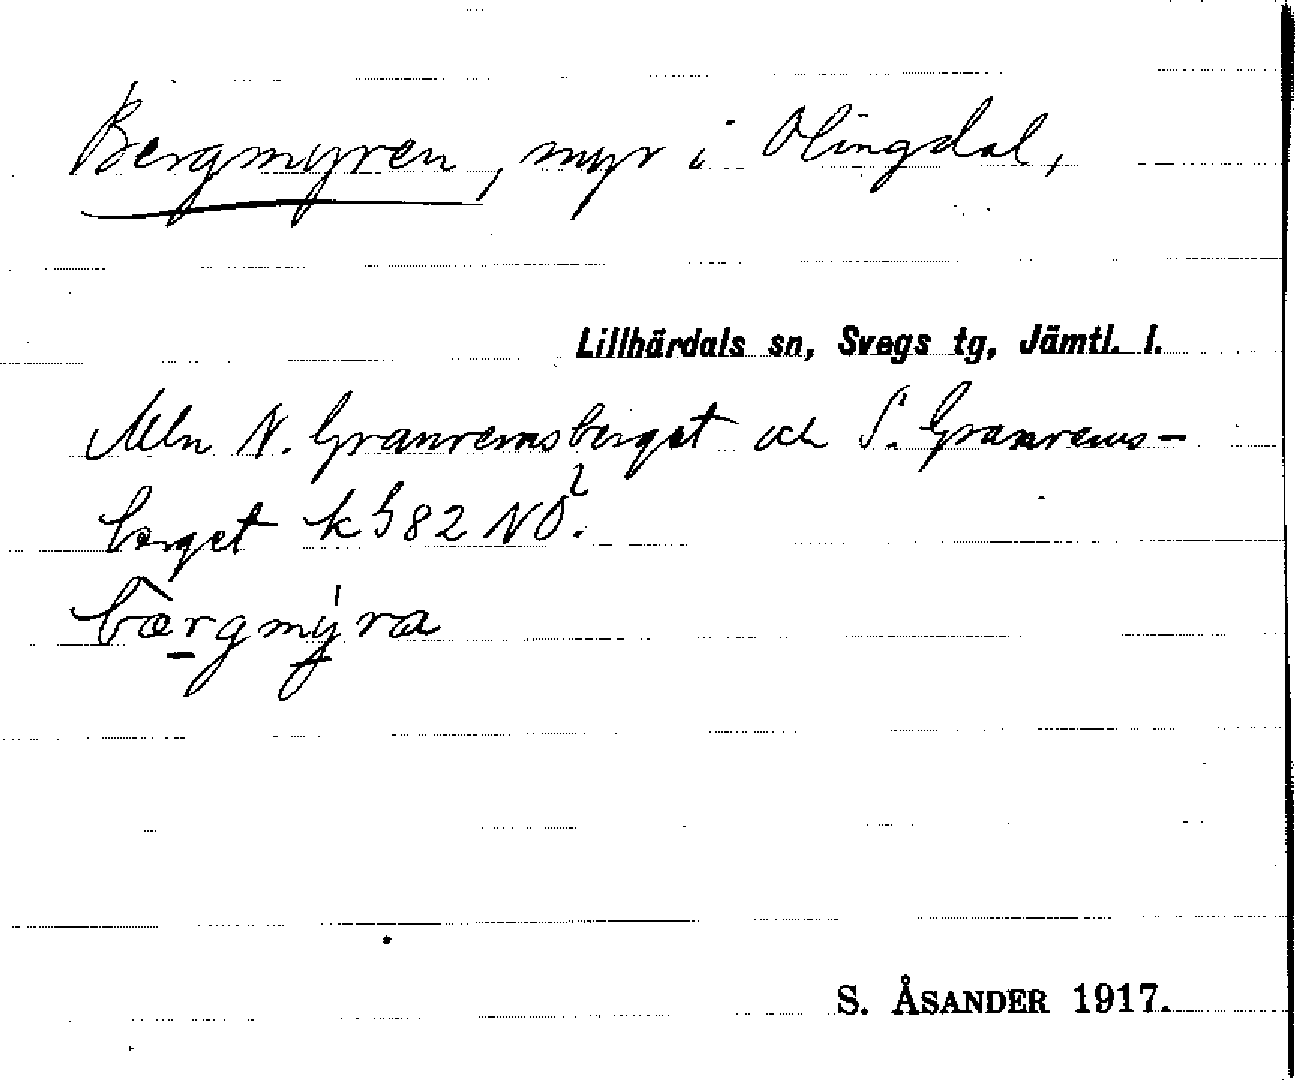 Bergmyren, myr i Olingdal,
Lillhärdals sn, Svegs tg, Jämtl. l.
Mln N. Granremsberget och S. Granrems-
berget k G82 NO?.
bærgmýra
S. ÅSANDER 1917.